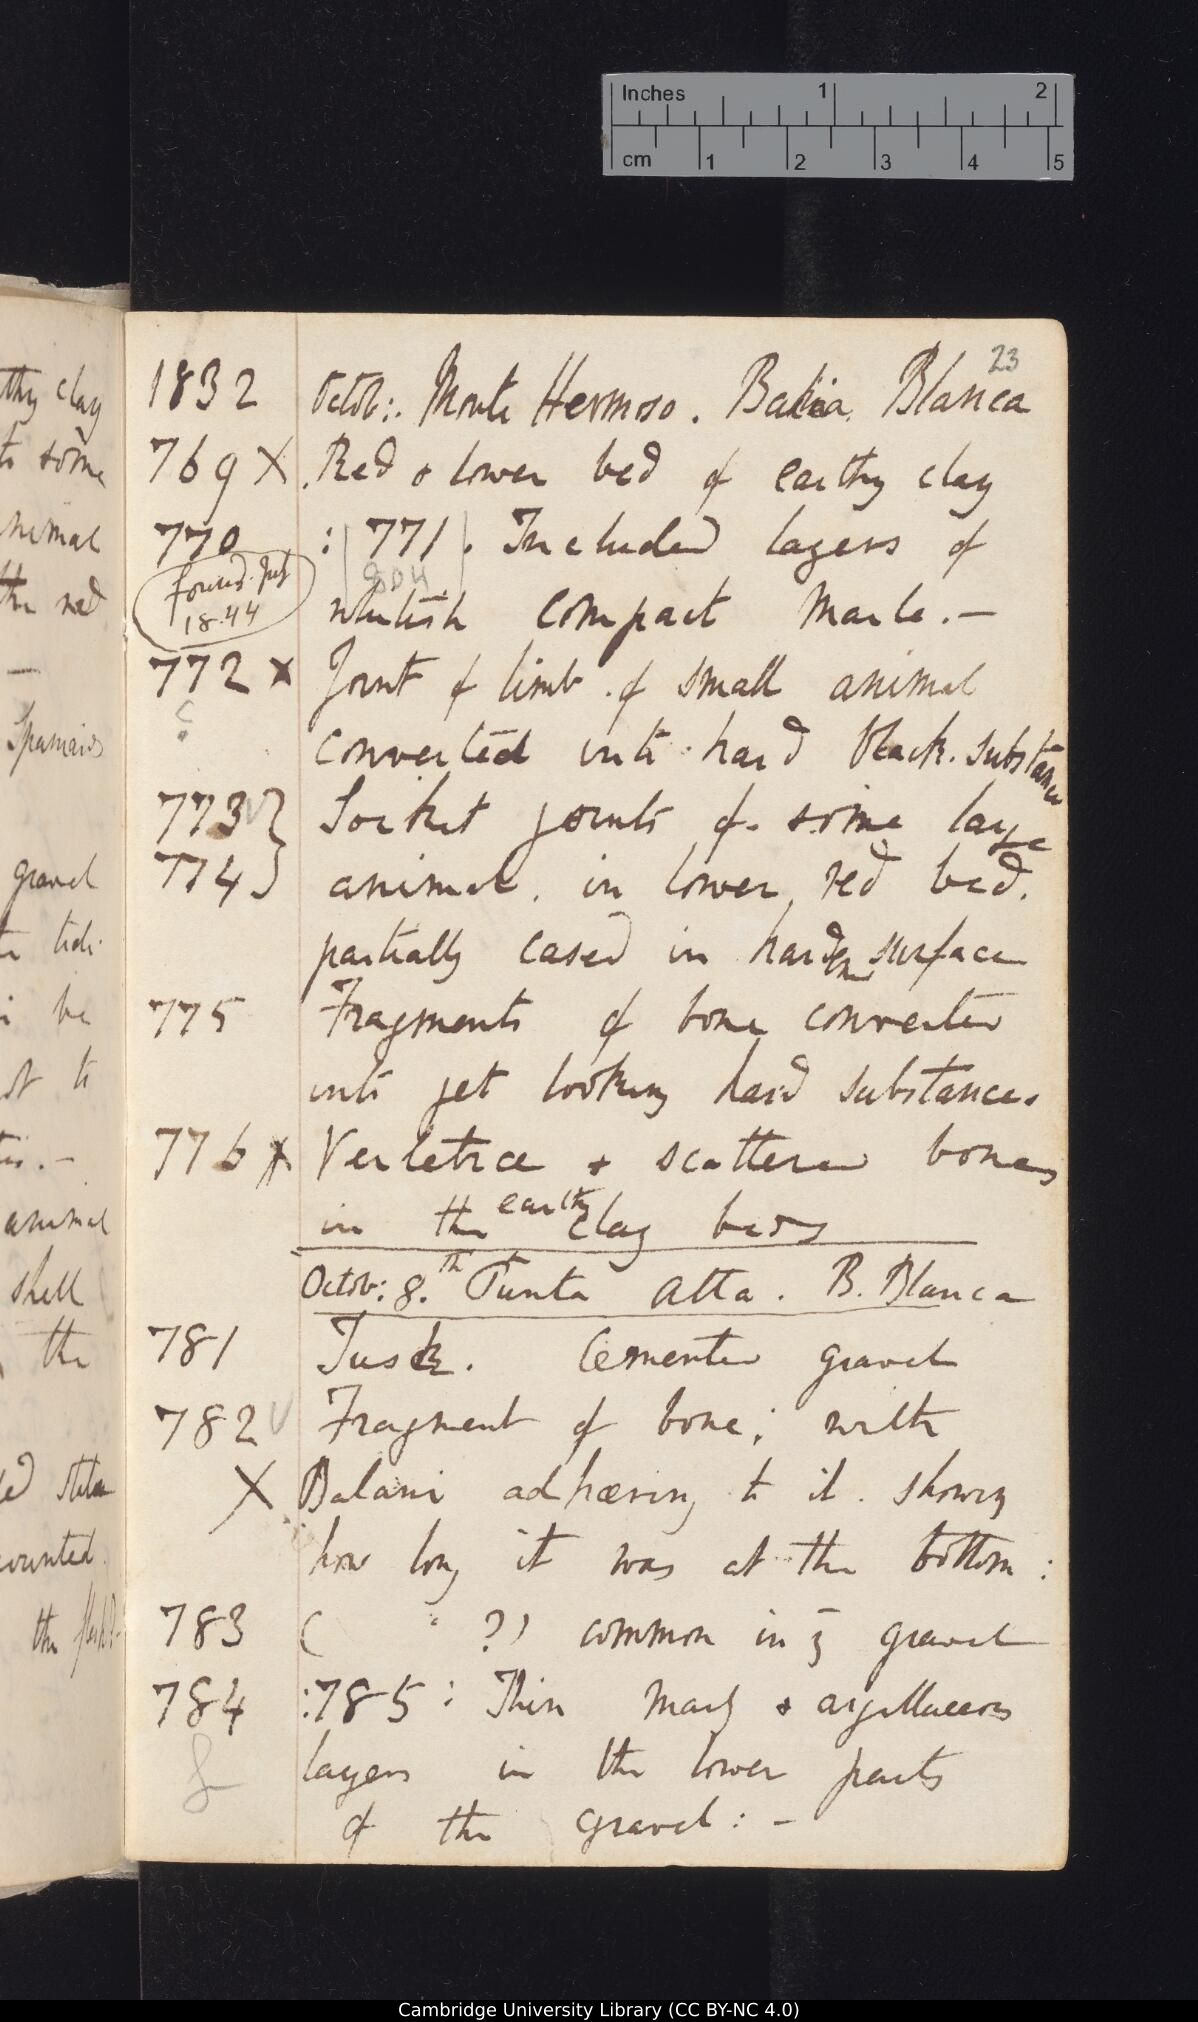 Inches 1 2
cm 1 2 3 4 5
23
1832 Octob:. Monte Hermoso. Bahia Blanca
769 X Red & lower bed of earthy clay
770 : 771. Included layers of
found July
1844
whitish compact Marle.—
772 X Joint of limb of small animal
?
converted into hard black substance
773 } Socket joints of some large
774 } animal. in lower red bed.
partially cased in harden surface
775 Fragments of bone converted
into jet looking hard substance.
776 X Vertebræ & scattered bones
in the earthy clay beds
Octob: 8.th Punta Alta. B. Blanca
781 Tusk. Cemented gravel
782 Fragment of bone; with
X Balani adhæring to it. showing
how long it was at the bottom:
783 ( " ?) common in gravel
784 :785: Thin marly & argillaceous
layers in the lower parts
of the gravel: —
thy clay
to some
animal
the red
—
Spaniards
gravel
tide
be
to
animal
shell
the
counted
the
Cambridge University Library (CC BY-NC 4.0)